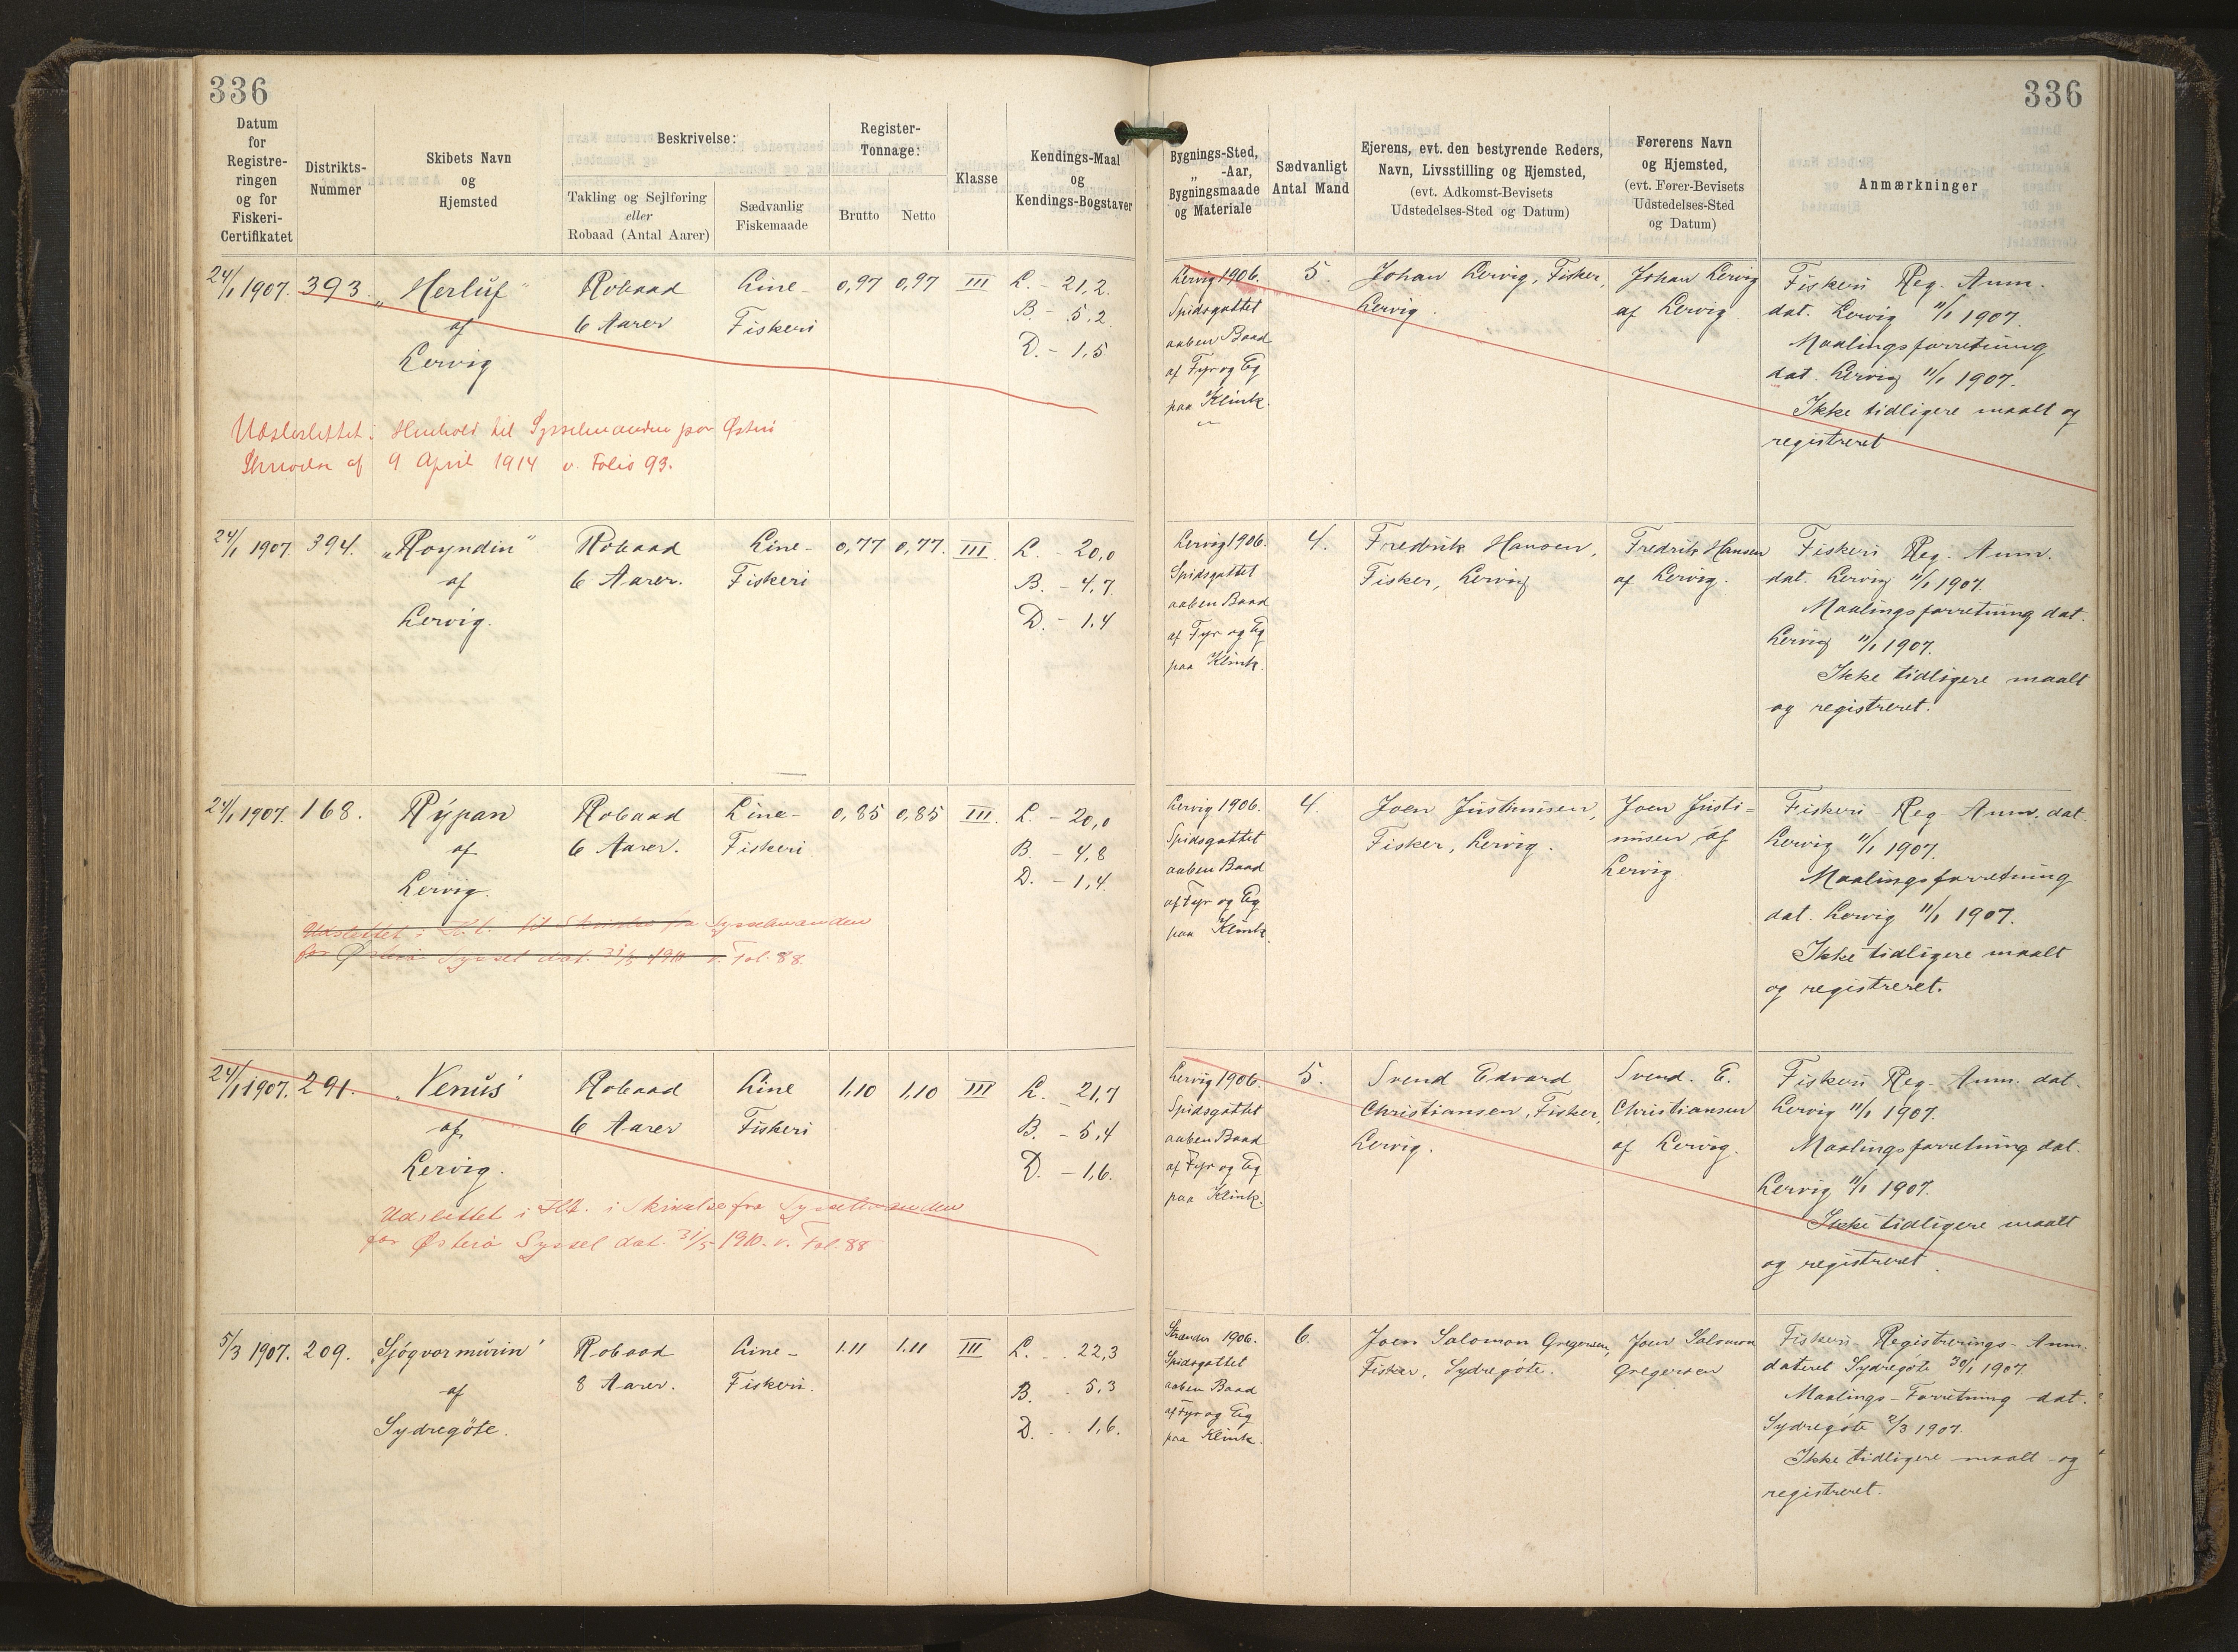 336
336
Datum for Registreringen og for Fiskeri-Certifikatet
Distrikts-Nummer
Skibets Navn og Hjemsted
Beskrivelse:
Takling og Sejlføring eller Robaad (Antal Aarer)
Sædvanlig Fiskemaade
Register-Tonnage:
Brutto
Netto
Klasse
Kendings-Maal og Kendings-Bogstaver
Bygnings-Sted, „ -Aar, Bygningsmaade og Materiale
Sædvanligt Antal Mand
Ejerens, evt. den bestyrende Reders, Navn, Livsstilling og Hjemsted, (evt. Adkomst-Bevisets Udstedelses-Sted og Datum)
Førerens Navn og Hjemsted, (evt. Fører-Bevisets Udstedelses-Sted og Datum)
Anmærkninger
24/1 1907.
393.
„Herluf"
af
Lervig
Robaad
6 Aarer
Line-
Fiskeri
0,97
0,97
III
L. - 21,2.
B. - 5,2
D. - 1,5
Lervig 1906.
Spidsgattet
aaben Baad
af Fyr og Eg
paa Klink.
5.
Johan Lervig, Fisker,
Lervig.
Johan Lervig
af Lervig.
Fiskeri Reg. Anm.
dat. Lervig 11/1 1907.
Maalingsforretning
dat. Lervig 11/1 1907.
Ikke tidligere maalt og
registreret
Udslettet i Henhold til Sysselmanden paa Østerø
Skrivelse af 9 April 1914 v. Folio 93.
24/1 1907
394.
„Royndin"
af
Lervig.
Robaad
6 Aarer.
Line-
Fiskeri
0,77
0,77.
III.
L. - 20,0
B. - 4,7.
D. - 1,4
Lervig 1906.
Spidsgattet
aaben Baad
af Fyr og Eg
paa Klink.
4.
Fredrik Hansen,
Fisker, Lervig
Fredrik Hansen
af Lervig.
Fiskeri Reg. Anm.
dat. Lervig 11/1 1907.
Maalingsforretning dat.
Lervig 11/1 1907.
Ikke tidligere maalt
og registreret.
24/1 1907.
168.
Rýpan
af
Lervig.
Robaad
6 Aarer.
Line-
Fiskeri
0,85
0,85
III.
L. - 20,0
B. - 4,8
D. - 1,4.
Lervig 1906.
Spidsgattet
aaben Baad
af Fyr og Eg
paa Klink.
4.
Joen Justinusen,
Fisker, Lervig.
Joen Justi=
nusen af
Lervig.
Fiskeri Reg Anm. dat.
Lervig 11/1 1907.
Maalingsforretning
dat. Lervig 11/1 1907.
Ikke tidligere maalt
og registreret.
Udslettet i H. t. til Skrivelse fra Sysselmanden
for Østerø Syssel dat. 31/5 1910 v. Fol. 88.
24/1 1907.
291.
„Venus"
af
Lervig.
Robaad
6 Aarer
Line
Fiskeri
1,10
1,10
III
L. - 21,7
B. - 5,4
D. - 1,6.
Lervig 1906.
Spidsgattet
aaben Baad
af Fyr og Eg
paa Klink.
5.
Svend Edvard
Christiansen, Fisker,
Lervig.
Svend. E.
Christiansen
af Lervig.
Fiskeri Reg. Anm. dat.
Lervig 11/1 1907.
Maalingsforretning dat.
Lervig 11/1 1907.
Ikke tidligere maalt
og registreret.
Udslettet i Hht. i Skrivelse fra Sysselmanden
for Østerø Syssel dat. 31/5 1910. v. Fol. 88
5/3 1907.
209.
„Sjógvarmurin"
af
Sydregöte.
Robaad
8 Aarer.
Line-
Fiskeri.
1.11
1.11
III
L. . . 22,3
B. . 5,3
D. . . 1,6.
Strander 1906.
Spidsgattet
aaben Baad
af Fyr og Eg
paa Klink.
6.
Joen Salomon Gregersen,
Fisker, Sydregöte.
Joen Salomon
Gregersen
Fiskeri-Registrerings-Anm.
dateret Sydregöte 30/1 1907.
Maalings-Forretning dat.
Sydregöte 2/3 1907.
Ikke tidligere maalt og
registreret.